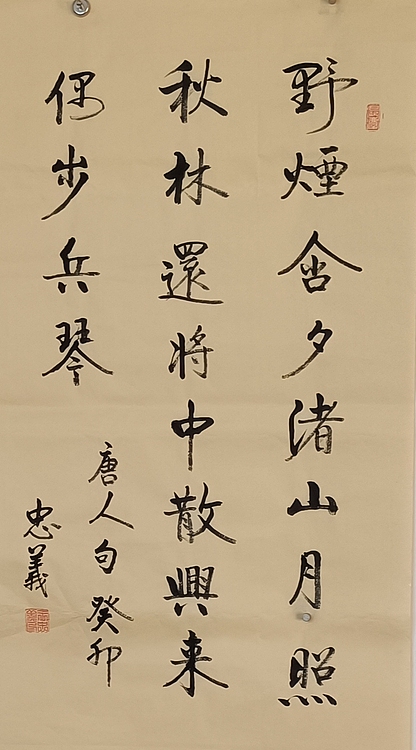 野煙含夕渚山月照
秋林還将中散興来
偶步兵琴
唐人句癸卯
忠義